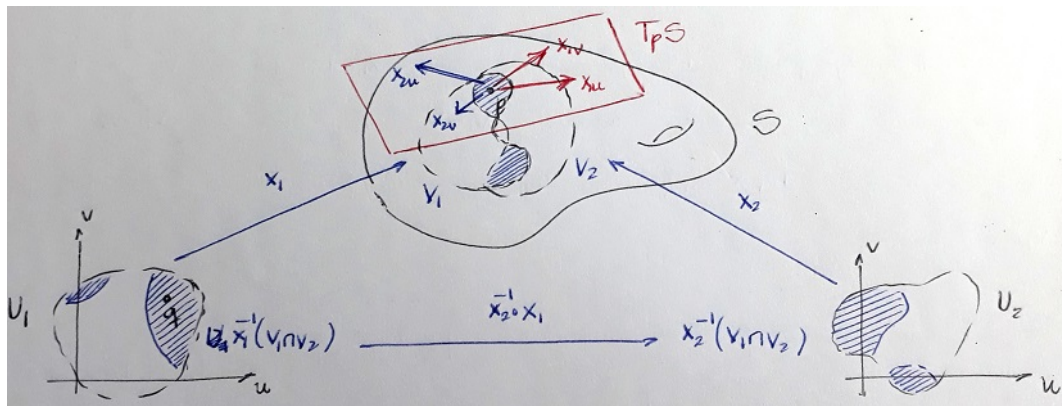 TpS
x₁ᵥ
x₂ᵤ
x₁ᵤ
x₂ᵥ
p
S
V₁
V₂
x₁
x₂
v
v
U₁
q
x₁⁻¹(V₁∩V₂)
x₂⁻¹∘x₁
x₂⁻¹(V₁∩V₂)
U₂
u
u